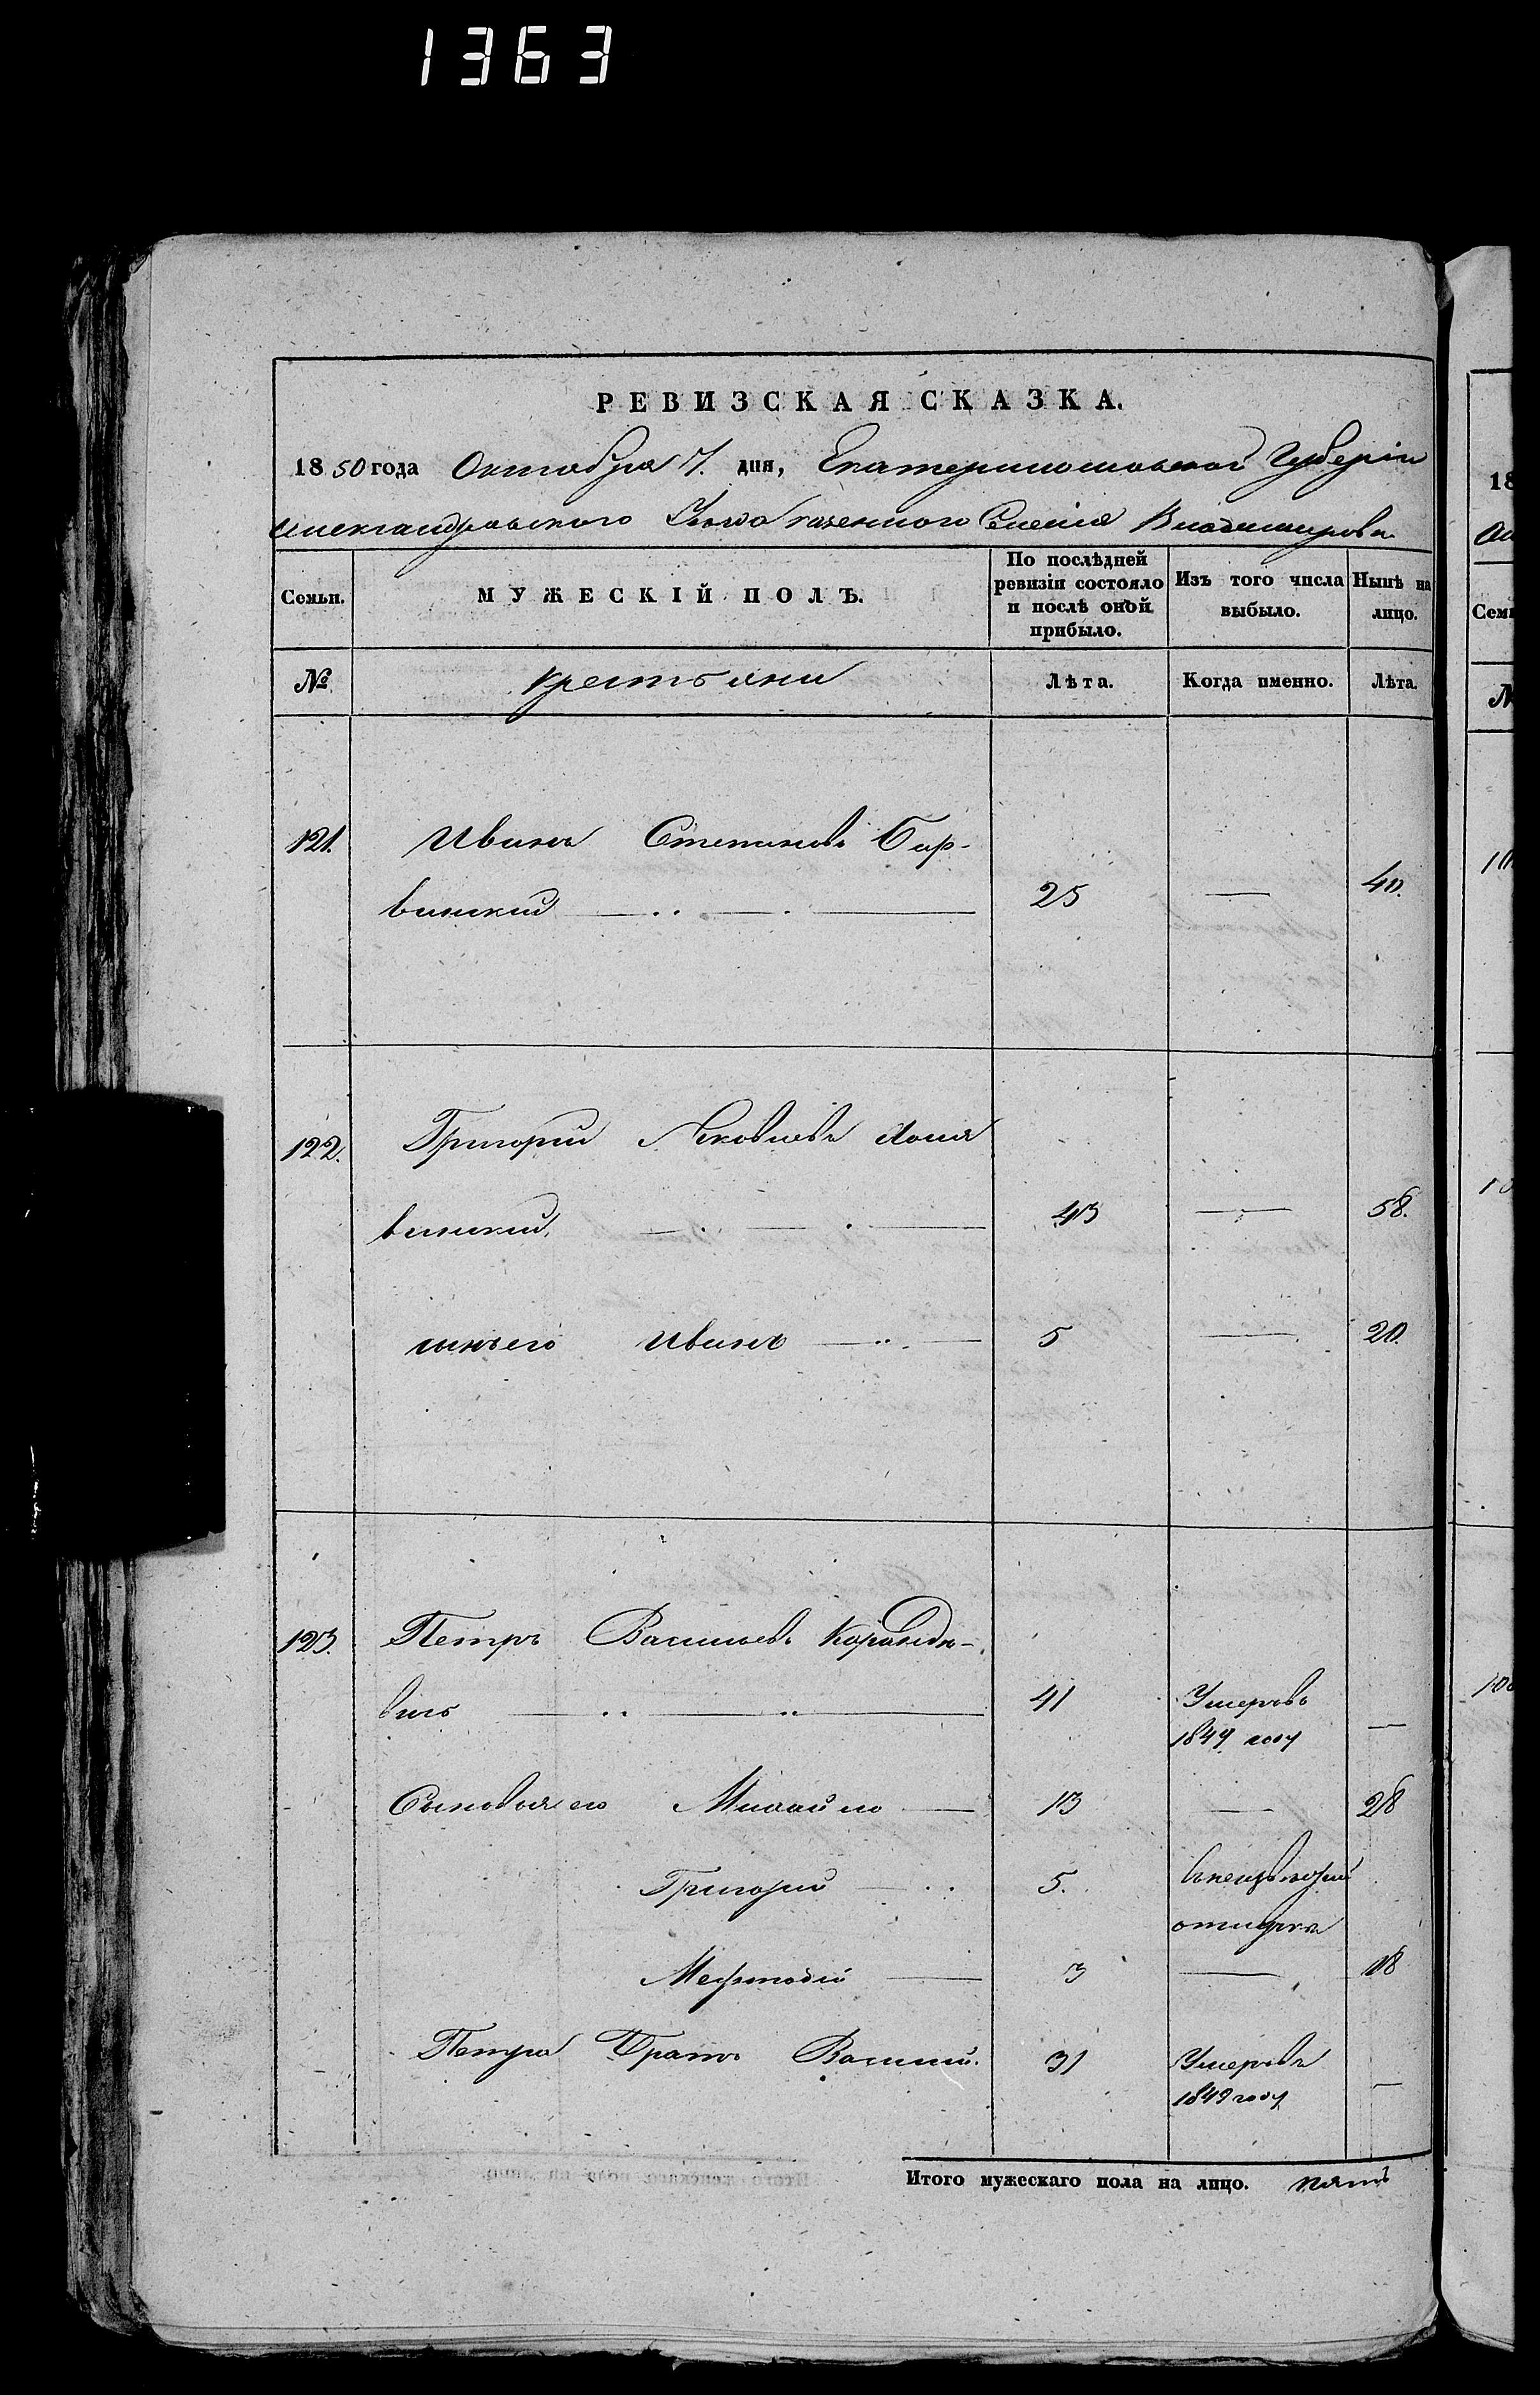 1363
РЕВИЗСКАЯ СКАЗКА.
1850 года Октября 7. дня, Екатеринославской Губерніи
Александровского Уезда казенного Селенія Владимировки
Семьи. МУЖЕСКІЙ ПОЛЪ. По послѣдней ревизіи состояло и послѣ оной прибыло. Изъ того числа выбыло. Нынѣ на лицо.
№ крестьяни Лѣта. Когда именно. Лѣта.
121. Иванъ Степановъ Бар-
винский 25 — 40.
122. Григорий Яковлевъ
винский 43 — 58.
сынъ его Иванъ — 5 — 20.
123. Петръ Васильевъ
вичь 41 Умеръ въ —
1849 году
Сыновья его Михайло — 13 — 28
Григорий — 5.
отлучке
Мефтодій — 3 — 18
Петра Братъ Василий. 31 Умеръ въ —
1849 году
Итого мужескаго пола на лицо. пять
18
Семь
№